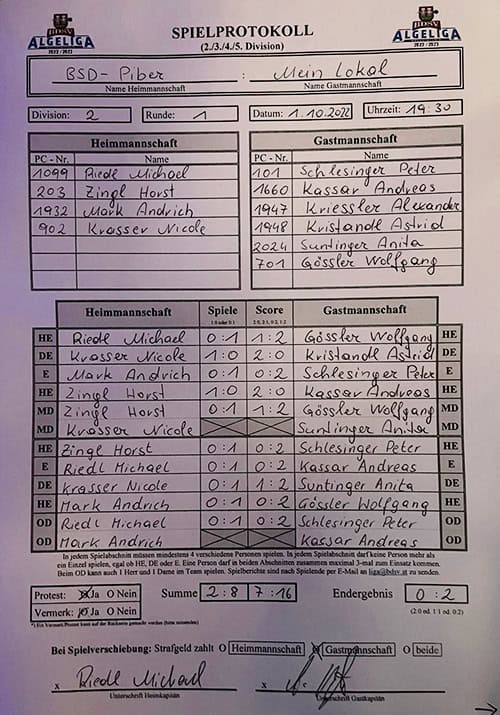 BDSV
ALGELIGA
2022 / 2023
SPIELPROTOKOLL
(2./3./4./5. Division)
BDSV
ALGELIGA
2022 / 2023
BSD-Piber : Mein Lokal
Name Heimmannschaft Name Gastmannschaft
Division: 2 Runde: 1 Datum: 1.10.2022 Uhrzeit: 19:30
Heimmannschaft Gastmannschaft
PC - Nr. Name PC - Nr. Name
1099 Riedl Michael 101 Schlesinger Peter
203 Zingl Horst 1660 Kassar Andreas
1932 Mark Andrich 1947 Kriessler Alexander
902 Krasser Nicole 1948 Kristandl Astrid
2024 Suntinger Anita
701 Gössler Wolfgang
Heimmannschaft Spiele Score Gastmannschaft
1:0 oder 0:1 2:0, 2:1, 0:2, 1:2
HE Riedl Michael 0:1 1:2 Gössler Wolfgang HE
DE Krasser Nicole 1:0 2:0 Kristandl Astrid DE
E Mark Andrich 0:1 0:2 Schlesinger Peter E
HE Zingl Horst 1:0 2:0 Kassar Andreas HE
MD Zingl Horst 0:1 1:2 Gössler Wolfgang MD
MD Krasser Nicole Suntinger Anita MD
HE Zingl Horst 0:1 0:2 Schlesinger Peter HE
E Riedl Michael 0:1 0:2 Kassar Andreas E
DE Krasser Nicole 0:1 1:2 Suntinger Anita DE
HE Mark Andrich 0:1 0:2 Gössler Wolfgang HE
OD Riedl Michael 0:1 0:2 Schlesinger Peter OD
OD Mark Andrich Kassar Andreas OD
In jedem Spielabschnitt müssen mindestens 4 verschiedene Personen spielen. In jedem Spielabschnitt darf keine Person mehr als
ein Einzel spielen, egal ob HE, DE oder E. Eine Person darf in beiden Abschnitten zusammen maximal 3-mal zum Einsatz kommen.
Beim OD kann auch 1 Herr und 1 Dame im Team spielen. Spielberichte sind nach Spielende per E-Mail an liga@bdsv.at zu senden.
Protest: O Ja O Nein Summe 2:8 7:16 Endergebnis 0:2
Vermerk: O Ja O Nein (2:0 od. 1:1 od. 0:2)
Bei Spielverschiebung: Strafgeld zahlt O Heimmannschaft O Gastmannschaft O beide
x Riedl Michael x
Unterschrift Heimkapitän Unterschrift Gastkapitän